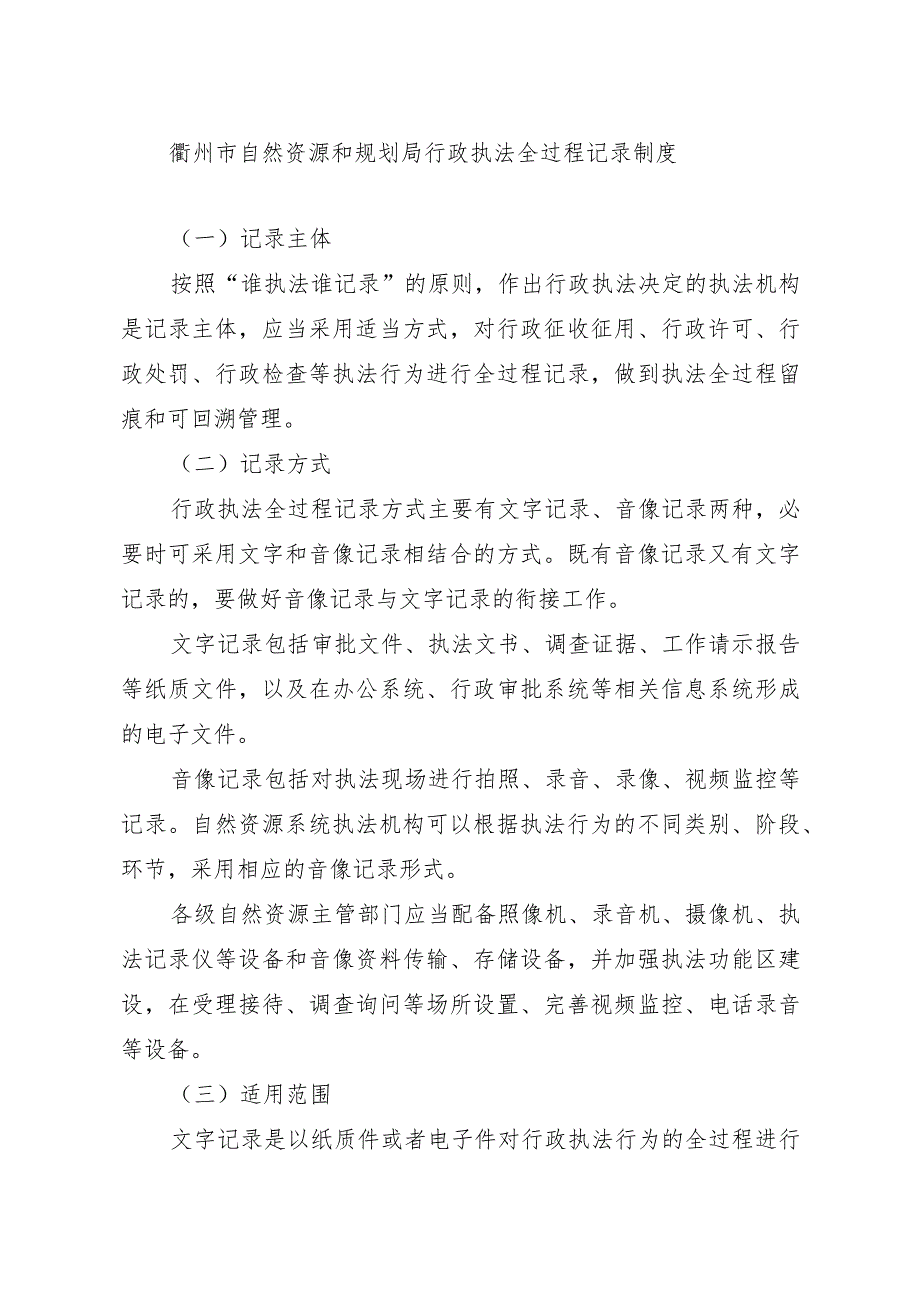 衢州市自然资源和规划局行政执法全过程记录制度
（一）记录主体
按照“谁执法谁记录”的原则，作出行政执法决定的执法机构
是记录主体，应当采用适当方式，对行政征收征用、行政许可、行
政处罚、行政检查等执法行为进行全过程记录，做到执法全过程留
痕和可回溯管理。
（二）记录方式
行政执法全过程记录方式主要有文字记录、音像记录两种，必
要时可采用文字和音像记录相结合的方式。既有音像记录又有文字
记录的，要做好音像记录与文字记录的衔接工作。
文字记录包括审批文件、执法文书、调查证据、工作请示报告
等纸质文件，以及在办公系统、行政审批系统等相关信息系统形成
的电子文件。
音像记录包括对执法现场进行拍照、录音、录像、视频监控等
记录。自然资源系统执法机构可以根据执法行为的不同类别、阶段、
环节，采用相应的音像记录形式。
各级自然资源主管部门应当配备照像机、录音机、摄像机、执
法记录仪等设备和音像资料传输、存储设备，并加强执法功能区建
设，在受理接待、调查询问等场所设置、完善视频监控、电话录音
等设备。
（三）适用范围
文字记录是以纸质件或者电子件对行政执法行为的全过程进行